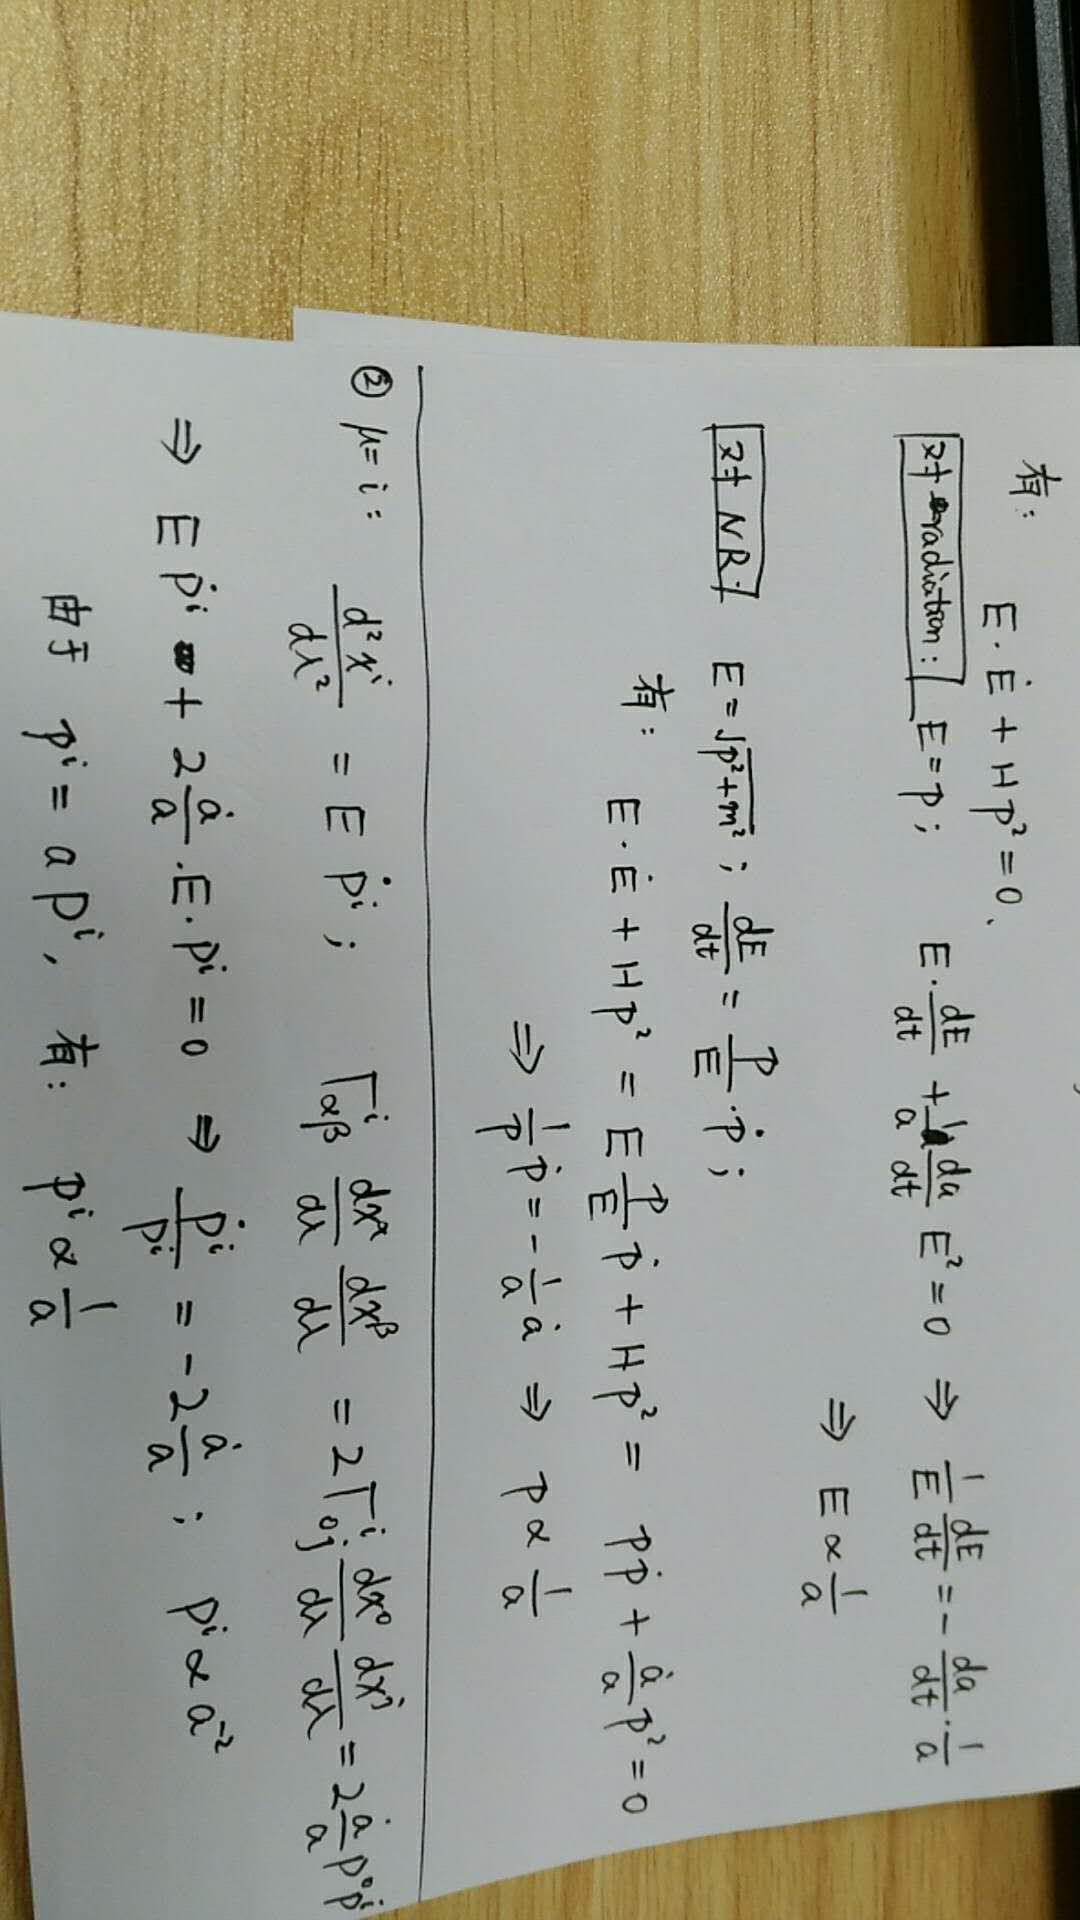 有: E·Ė + Hp² = 0.
对 radiation: E = p; E·dE/dt + 1/a da/dt E² = 0 ⇒ 1/E dE/dt = - da/dt · 1/a
⇒ E ∝ 1/a
对 NR: E = √(p²+m²); dE/dt = p/E · ṗ;
有: E·Ė + Hp² = E p/E ṗ + Hp² = pṗ + ȧ/a p² = 0
⇒ 1/p ṗ = - 1/a ȧ ⇒ p ∝ 1/a
② μ = i: d²xⁱ/dλ² = E Ṗⁱ; Γⁱαβ dxᵅ/dλ dxᵝ/dλ = 2Γⁱ₀ⱼ dx⁰/dλ dxʲ/dλ = 2 ȧ/a P⁰Pⁱ
⇒ E Ṗⁱ + 2 ȧ/a · E · Pⁱ = 0 ⇒ Ṗⁱ/Pⁱ = -2 ȧ/a; Pⁱ ∝ a⁻²
由于 pⁱ = a Pⁱ, 有: pⁱ ∝ 1/a